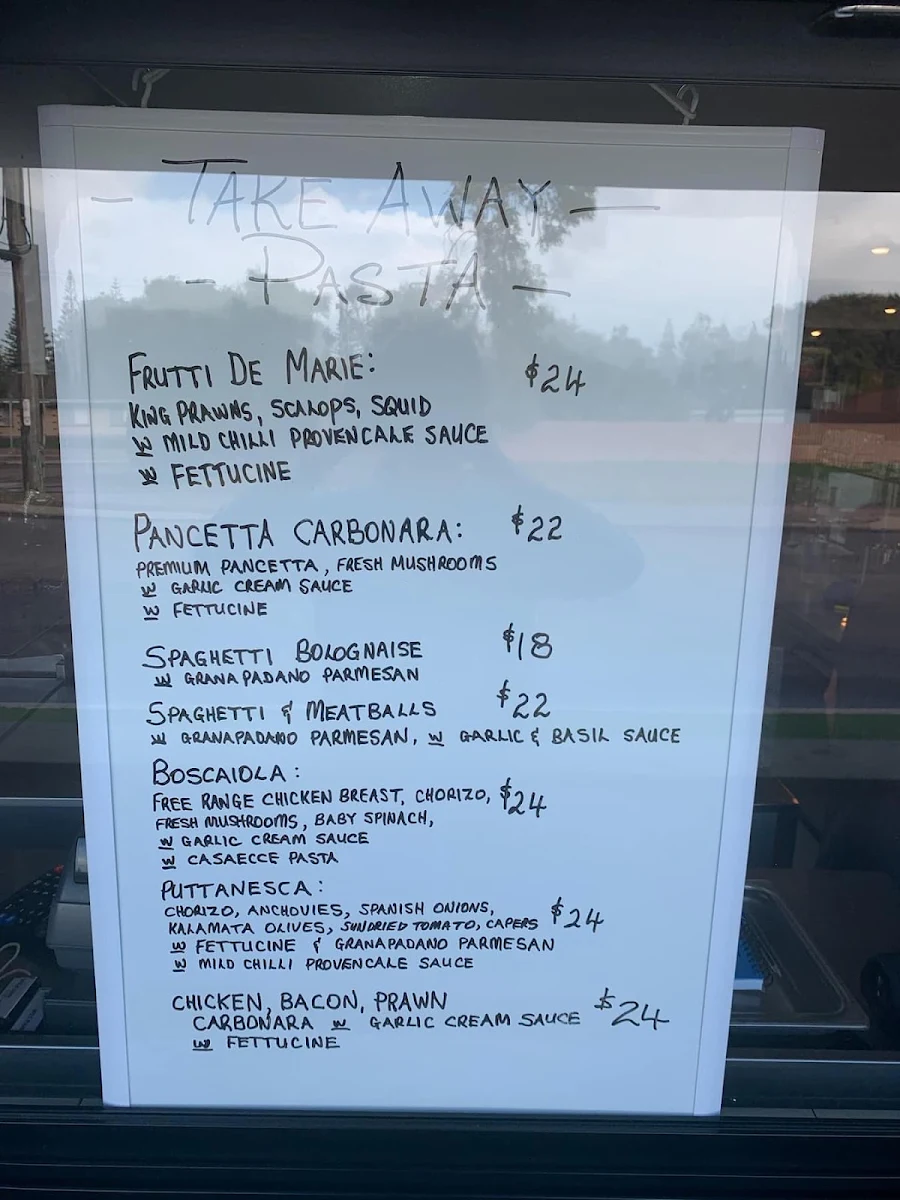 - TAKE AWAY -
- PASTA -
FRUTTI DE MARIE: $24
KING PRAWNS, SCALOPS, SQUID
W MILD CHILLI PROVENCALE SAUCE
W FETTUCINE
PANCETTA CARBONARA: $22
PREMIUM PANCETTA, FRESH MUSHROOMS
W GARLIC CREAM SAUCE
W FETTUCINE
SPAGHETTI BOLOGNAISE $18
W GRANA PADANO PARMESAN
SPAGHETTI & MEATBALLS $22
W GRANAPADANO PARMESAN, W GARLIC & BASIL SAUCE
BOSCAIOLA:
FREE RANGE CHICKEN BREAST, CHORIZO, $24
FRESH MUSHROOMS, BABY SPINACH,
W GARLIC CREAM SAUCE
W CASAECCE PASTA
PUTTANESCA:
CHORIZO, ANCHOVIES, SPANISH ONIONS, $24
KALAMATA OLIVES, SUNDRIED TOMATO, CAPERS
W FETTUCINE & GRANAPADANO PARMESAN
W MILD CHILLI PROVENCALE SAUCE
CHICKEN, BACON, PRAWN $24
CARBONARA W GARLIC CREAM SAUCE
W FETTUCINE